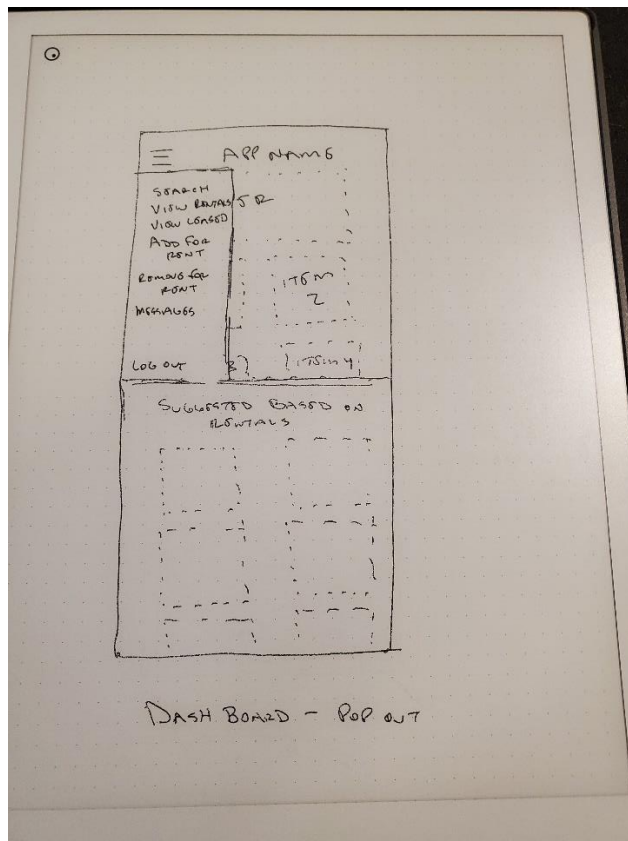 APP NAME
SEARCH
VIEW RENTALS
VIEW LEASED
ADD FOR
RENT
REMOVE FOR
RENT
MESSAGES
LOG OUT
ITEM
2
ITEM 4
SUGGESTED BASED ON
RENTALS
DASH BOARD - POP OUT